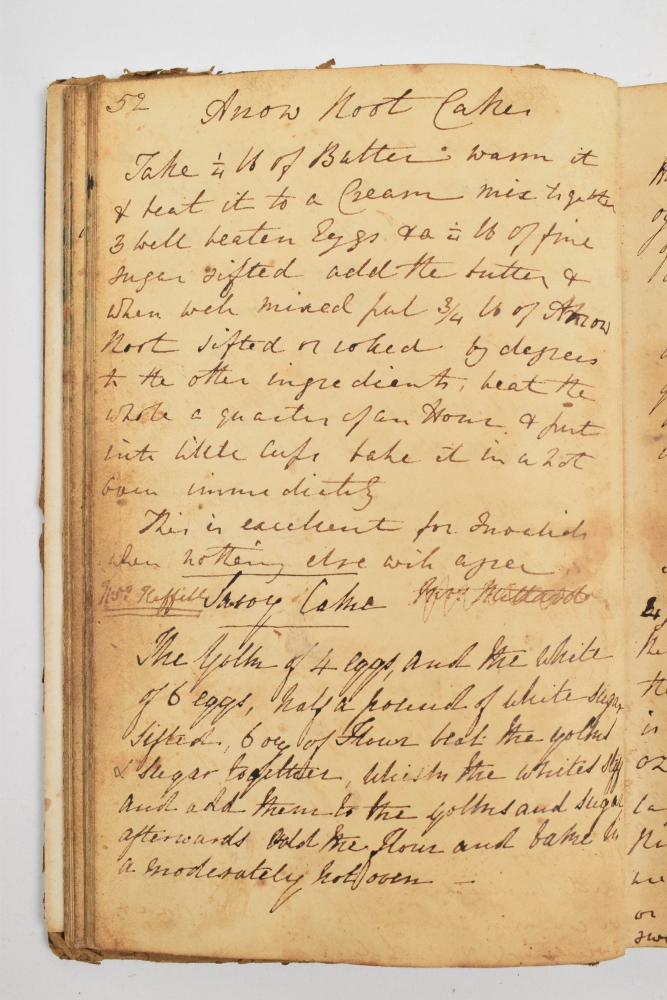 52
Arrow Root Cakes
Take 1/4 lb of Butter warm it
& beat it to a Cream mix together
3 well beaten Eggs & a 1/4 lb of fine
sugar sifted add the butter &
when well mixed put 3/4 lb of Arrow
Root sifted or rolled by degrees
to the other ingredients, beat the
whole a quarter of an Hour & put
into little Cups bake it in a hot
Oven immediately
This is excellent for Invalids
when nothing else will agree
Savoy Cake
The Yolks of 4 eggs, and the white
of 6 eggs, half a pound of white sugar
sifted, 6 oz of Flour beat the yolks
& sugar together, whisk the whites stiff
and add them to the yolks and sugar
afterwards add the flour and bake in
a moderately hot oven —